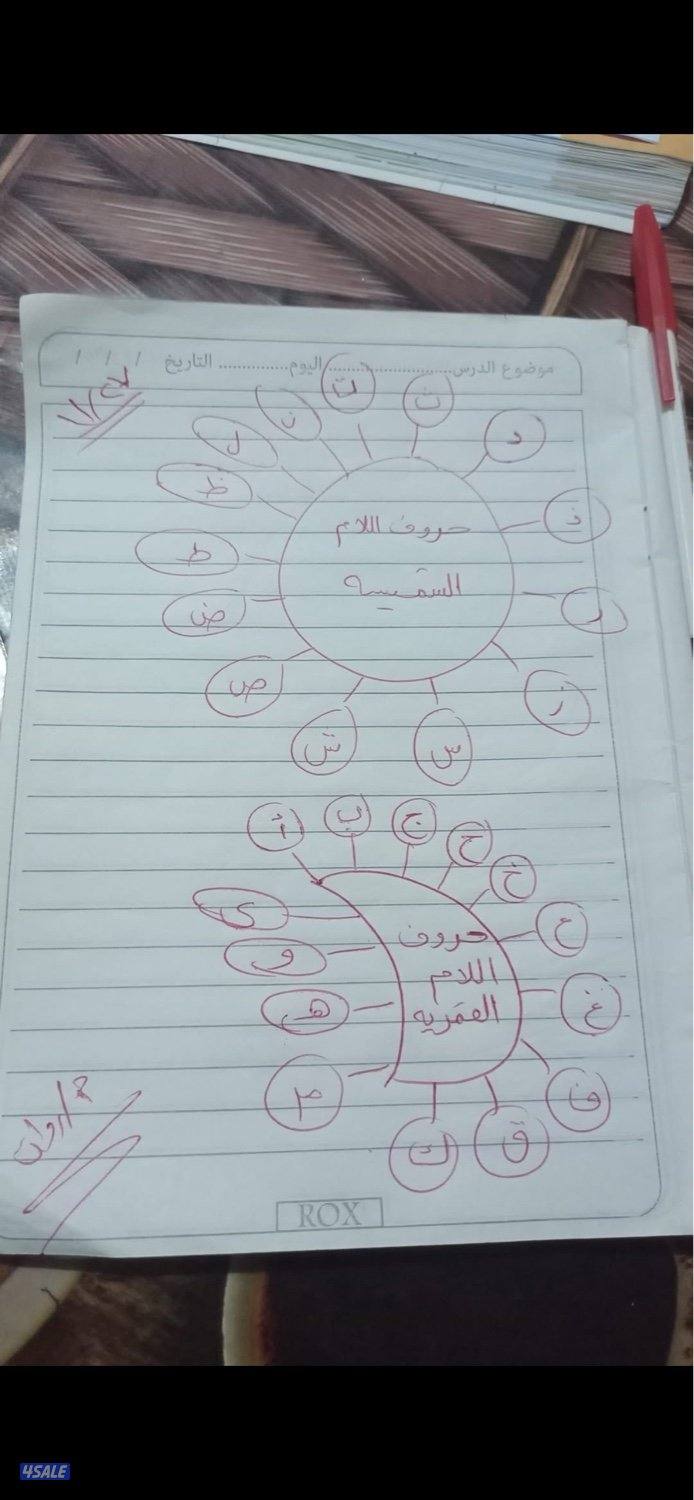 موضوع الدرس.......................اليوم................ التاريخ / / /
ت
ث
د
ذ
ر
ز
س
ش
ص
ض
ط
ظ
ل
ن
حروف اللام
الشمسيه
أ
ب
ج
ح
خ
ع
غ
ف
ق
ك
م
هـ
و
ي
حروف
اللام
القمريه
ROX
4SALE